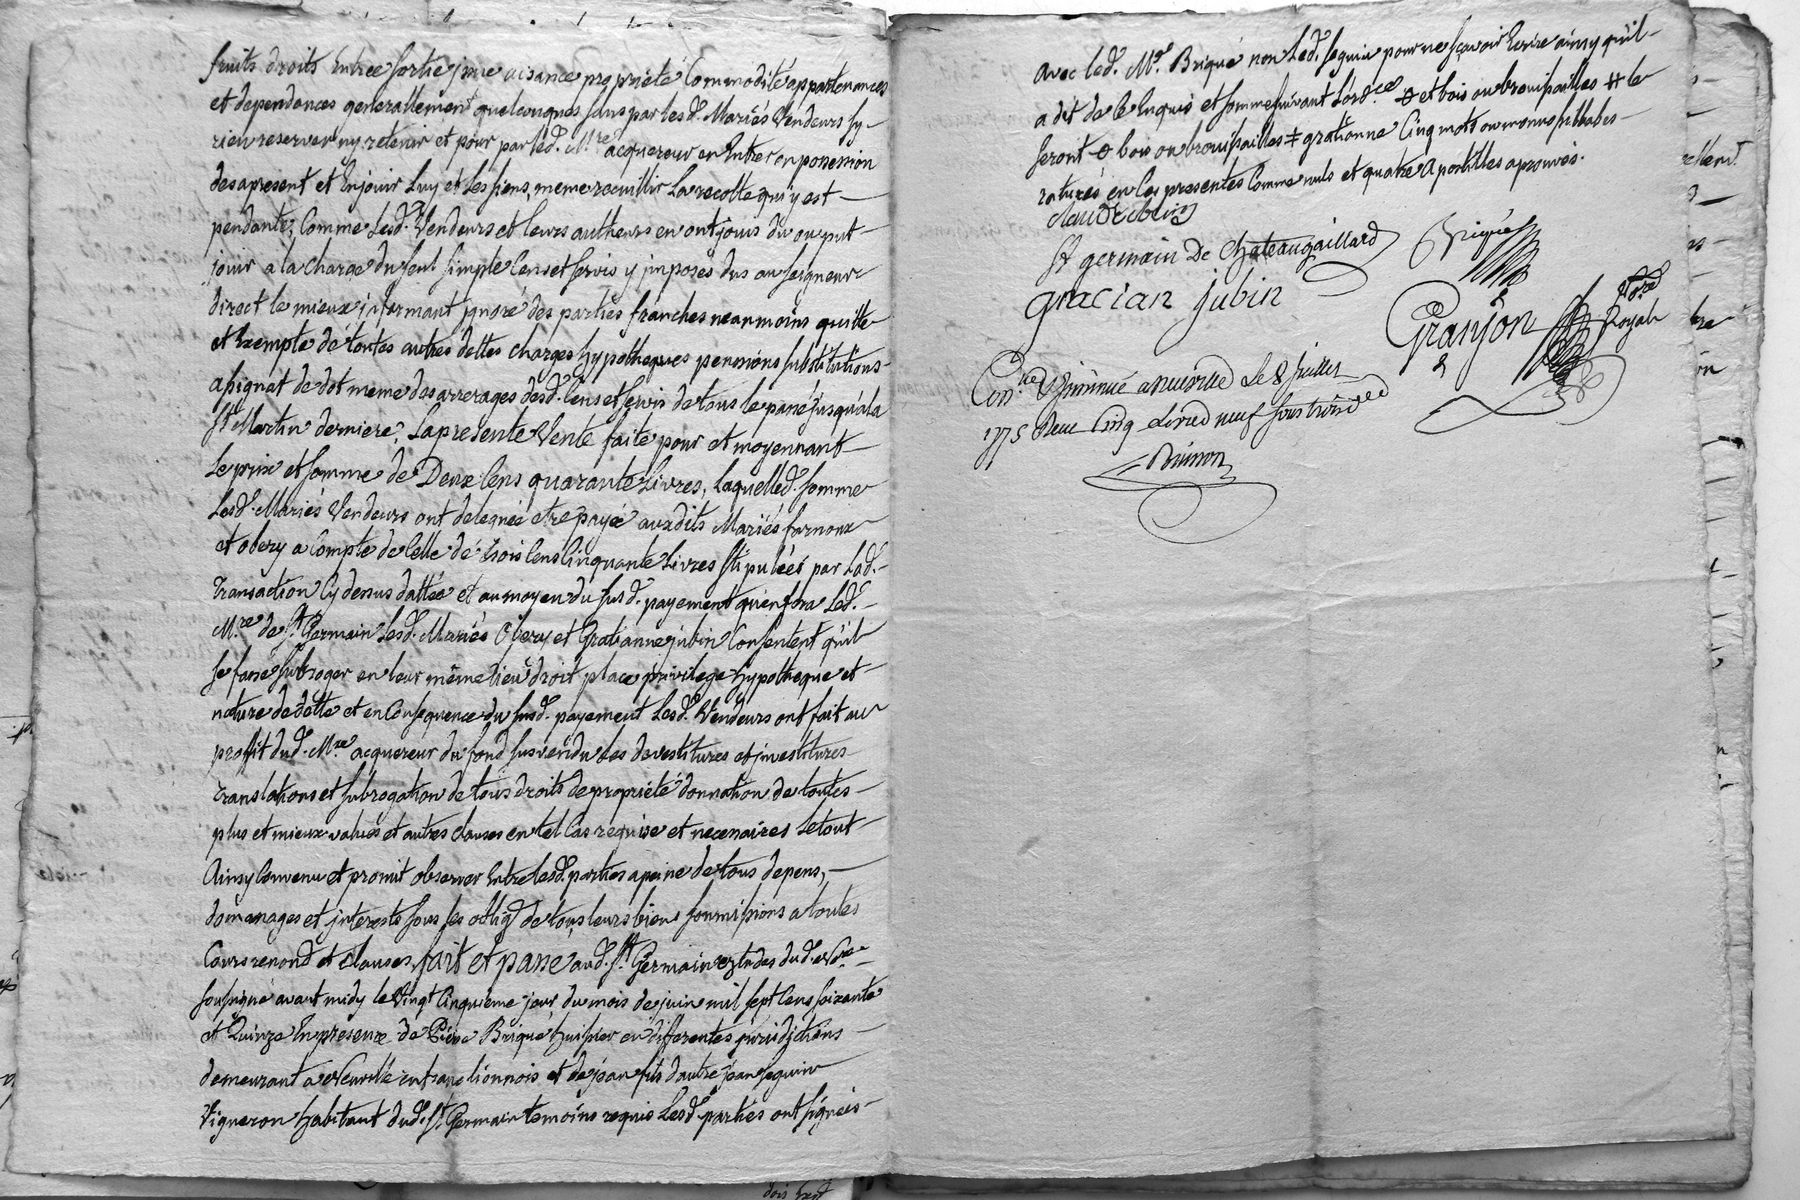 fruits droits Entrée sortie jssue aisance propriété Commodité appartenances
et dependances generallement quelconques sans par lesd. Mariés Vendeurs sy
rien reserver ny retenir et pour par led. Mre acquereur en Entrer en possession
desapresent et Enjouir Luy et Les siens, meme recuillir La recolte qui y est
pendante, Comme Lesd. Vendeurs et leurs autheurs en ont jouis du ou put
jouir a la charge du seul simple Cens et servis y jmposés dus au seigneur
direct le mieux jnformant jgnoré des parties franches neanmoins quitte
et Exempte de toutes autres dettes charges hypotheques pensions substitutions
assignat de dot meme des arrerages desd. Cens et servis de tous le passé jusqu'a la
St Martin derniere, La presente Vente faite pour et moyennant
Le prix et somme de Deux Cens quarante Livres, Laquelled. somme
Lesd. Mariés Vendeurs ont delegués etre payée auxdits Mariés farnoux
et obery a Compte de Celle de trois Cens Cinquante Livres stipulées par Lad.
Transaction Cy dessus dattée et au moyen du susd. payement qu'en fera Led.
Mre de St Germain Lesd. Mariés Obery et Gratianne jubin Consentent qu'il
se fasse subroger en leur même lieu droit place privilege hypotheque et
nature de dette et en Consequence du susd. payement Lesd. Vendeurs ont fait au
proffit dud. Mre acquereur du fond sus vendu Les devestitures et jnvestitures
translations et subrogation de tous droits de propriété donnation de toutes
plus et mieux values et autres clauses en tel Cas requise et necessaires Le tout
Ainsy Convenu et promit observer Entre lesd. parties a peine de tous depens,
domanages et jnterests sous les obligⁿ de tous leurs biens soumissions a toutes
Cours renond et Clauses, fait et passé aud. St Germain Etudes dud. Nre
soussigné avant midy le Vingt Cinquieme jour du mois de juin mil sept Cens soixante
et Quinze En presence de Pierre Briqué huissier en differentes juridictions
demeurant a Neuville en franc lionnois et de jean fils d'autre jean seguin
Vigneron habitant dud. St Germain temoins requis Lesd. parties ont signées
avec led. Mr. Briqué non Led. seguin pour ne sçavoir Ecrire ainsy qu'il
a dit de ce Enquis et sommé suivant Lordce et bois ou broussailles le
seront bois ou broussailles gratianne Cinq mots ou moins sillabes
raturés en Ces presentes Comme nuls et quatre apostilles aprouvés.
Claude jubin
St germain De chateaugaillard Briqué
gracian jubin
Granjon Nore Royal
Conlé & jnsinué a neuville Le 8 juillet
1775 Reçu Cinq Livres neuf sous trois d